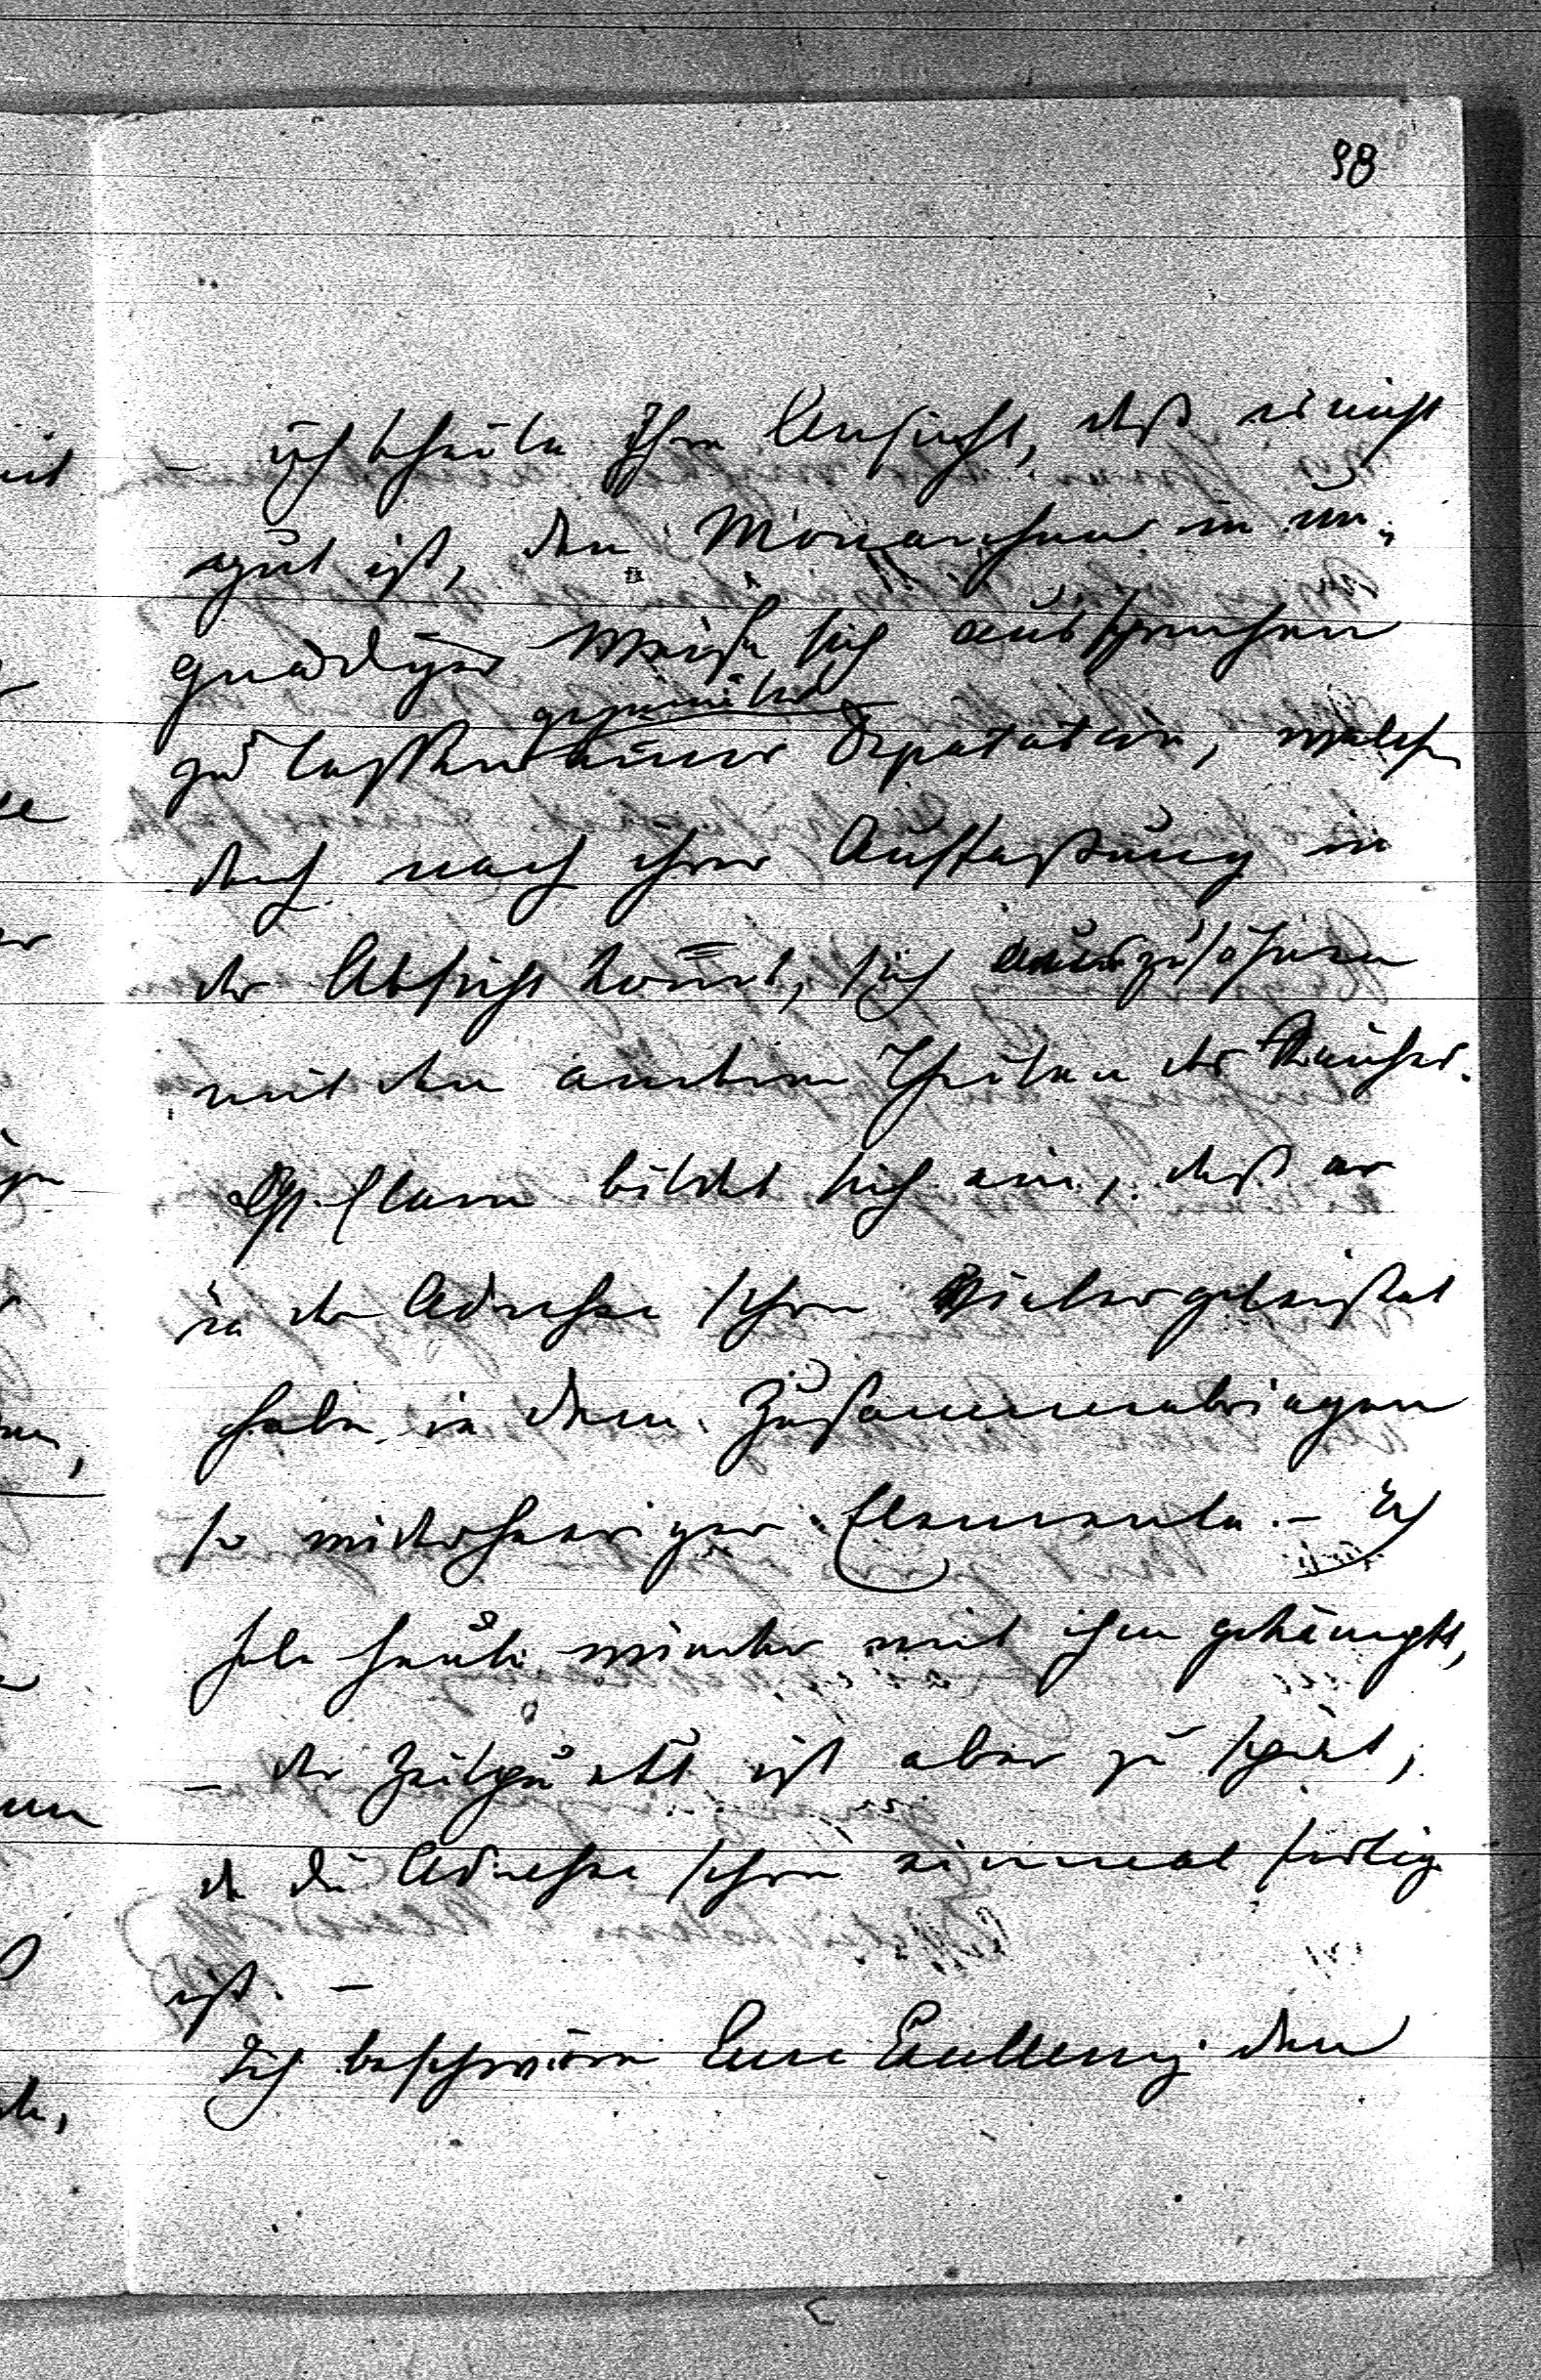 98
– ich theile Ihre Ansicht, daß es nicht
gut ist, den Monarchen in un-
gnädiger Weise sich aussprechen
gegenüber
zu lassen einer Deputation, welche
doch nach ihrer Auffassung in
der Absicht kom̅t, sich auszusöhnen
mit den anderen Theilen des Reiches.
Gf. Clam bildet sich ein, daß er
in der Adresse schon Vieles geleistet
habe in dem Zusammenbringen
so widerhaariger Elemente. – Ich
habe heute wieder mit ihm gekämpft,
– der Zeitpunkt ist aber zu spät,
da die Adresse schon einmal fertig
ist. –
Ich beschwöre Eure Excellenz den